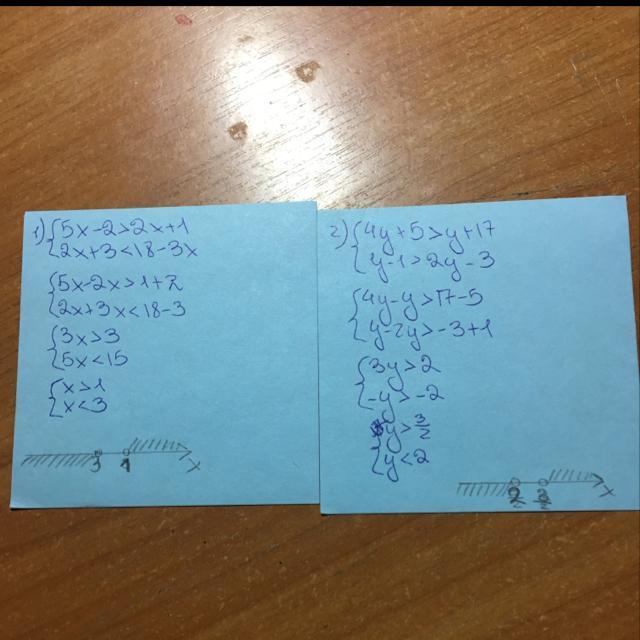 1) { 5x-2>2x+1
{ 2x+3<18-3x
{ 5x-2x>1+2
{ 2x+3x<18-3
{ 3x>3
{ 5x<15
{ x>1
{ x<3
3 1 x
2) { 4y+5>y+17
{ y-1>2y-3
{ 4y-y>17-5
{ y-2y>-3+1
{ 3y>2
{ -y>-2
{ y>3/2
{ y<2
x